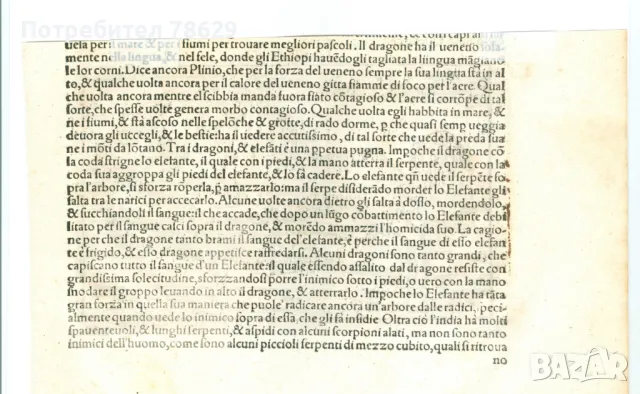 Потребител 78629
uela per il mare & per i fiumi per trouare megliori pascoli. Il dragone ha il ueneno sola-
mente nella lingua, & nel fele, donde gli Ethiopi hauẽdogli tagliata la lingua mãgiano
le lor carni. Dice ancora Plinio, che per la forza del ueneno sempre la sua lingua sta in al
to, & qualche uolta ancora per il calore del ueneno gitta fiamme di foco per l'aere. Qual
che uolta ancora mentre el scibbia manda fuora fiato cõtagioso & l'aere si corrõpe di tal
sorte, che spesse uolte genera morbo contagioso. Qualche uolta egli habbita in mare, &
ne i fiumi, & sta ascoso nelle spelõche & grotte, di rado dorme, ꝑ che quasi semꝑ ueggia
deuora gli uccegli, & le bestie: ha il uedere accutissimo, di tal sorte che uede la preda sua
ne i mõti da lõtano. Tra i dragoni, & elefãti è una ꝑpetua pugna. Impoche il dragone cõ
la coda strigne lo elefante, il quale con i piedi, & la mano atterra il serpente, quale con la
coda sua aggroppa gli piedi del elefante, & lo fa cadere. Lo elefante qñ uede il serpẽte so
pra l'arbore, si sforza rõperla, ꝑ amazzarlo: ma il serpe disiderãdo morder lo Elefante gli
salta tra le narici per accecarlo. Alcune uolte ancora dietro gli salta à dosso, mordendolo,
& succhiandoli il sangue: il che accade, che dopo un lũgo cobattimento lo Elefante debi
litato per il sangue calci sopra il dragone, & morẽdo ammazzi l'homicida suo. La cagio-
ne per che il dragone tanto brami il sangue del'elefante, è perche il sangue di esso elefan
te è frigido, & esso dragone appetisce raffredarsi. Alcuni dragoni sono tanto grandi, che
capiscano tutto il sangue d'un Elefante: il quale essendo assalito dal dragone resiste con
grandissima solecitudine, sforzandosi porre l'inimico sotto i piedi, o uero con la mano
snodare il groppo leuando in alto il dragone, & atterrarlo. Impoche lo Elefante ha tãta
gran forza in quella sua maniera che puole' radicare ancora un'arbore dalle radici, peci-
almente quando uede lo inimico sopra di essa, che gli fa insidie. Oltra ciò l'india ha molti
spauenteuoli, & lunghi serpenti, & aspidi con alcuni scorpioni alati, ma non sono tanto
inimici dell'huomo, come sono alcuni piccioli serpenti di mezzo cubito, quali si ritroua
no
BAZAR